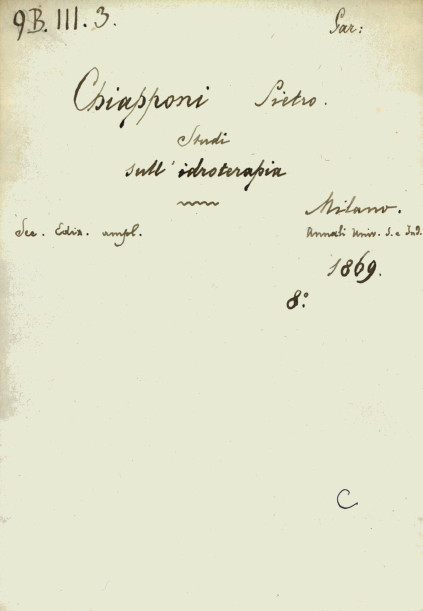 9B. III. 3. Gar:
Chiapponi Pietro.
Studi
sull' idroterapia
Milano.
Sec. Ediz. ampl. Annali Univ. S. e Ind.
1869.
8.º
C